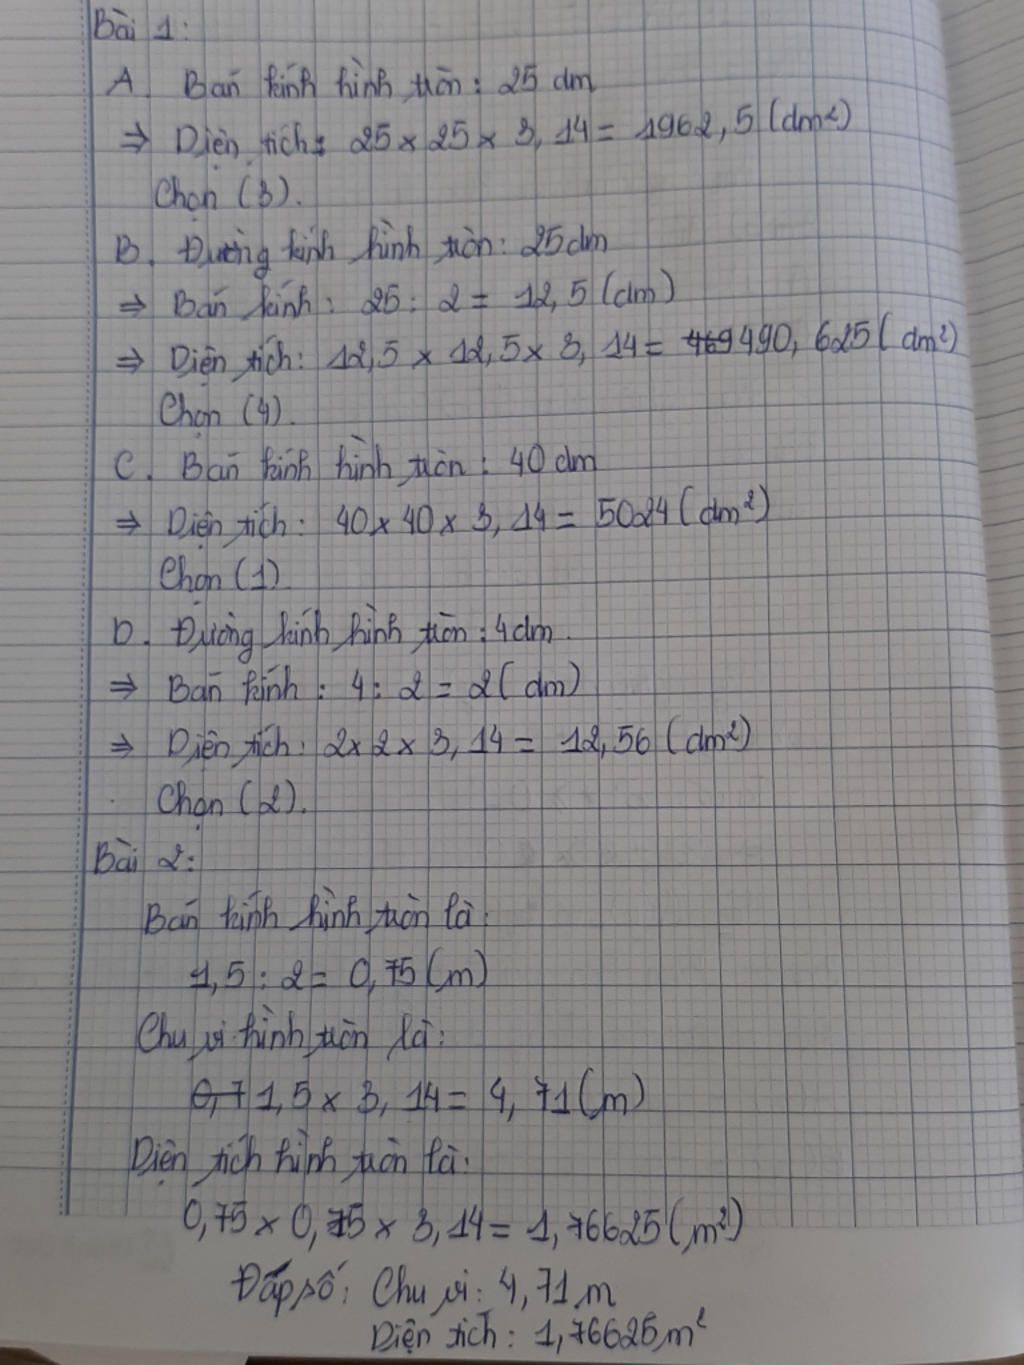 Bài 1:
A. Bán kính hình tròn: 25 dm
⇒ Diện tích: 25 x 25 x 3,14 = 1962,5 (dm²)
Chọn (3).
B. Đường kính hình tròn: 25dm
⇒ Bán kính: 25 : 2 = 12,5 (dm)
⇒ Diện tích: 12,5 x 12,5 x 3,14 = 469 490,625 (dm²)
Chọn (4).
C. Bán kính hình tròn: 40 dm
⇒ Diện tích: 40 x 40 x 3,14 = 5024 (dm²)
Chọn (1)
D. Đường kính hình tròn: 4dm.
⇒ Bán kính: 4 : 2 = 2 (dm)
⇒ Diện tích: 2 x 2 x 3,14 = 12,56 (dm²)
Chọn (2).
Bài 2:
Bán kính hình tròn là:
1,5 : 2 = 0,75 (m)
Chu vi hình tròn là:
0,7 1,5 x 3,14 = 4,71 (m)
Diện tích hình tròn là:
0,75 x 0,75 x 3,14 = 1,76625 (m²)
Đáp số: Chu vi: 4,71 m
Diện tích: 1,76625 m²